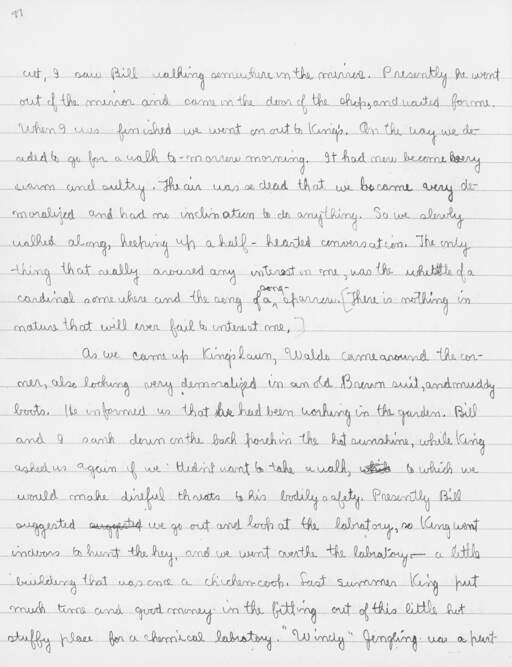 cut, I saw Bill walking somewhere in the mirror. Presently he went
out of the mirror and came in the door of the shop, and waited for me.
When I was finished we went on out to King's. On the way we de-
cided to go for a walk to-morrow morning. It had now become very
warm and sultry. The air was so dead that we became very de-
moralized and had no inclination to do anything. So we slowly
walked along, keeping up a half-hearted conversation. The only
thing that really aroused any interest in me, was the whistle of a
cardinal somewhere and the song of a song-sparrow. [There is nothing in
nature that will ever fail to interest me.]
As we came up King's lawn, Waldo came around the cor-
ner, also looking very demoralized in an old Brown suit, and muddy
boots. He informed us that he had been working in the garden. Bill
and I sank down on the back porch in the hot sunshine, while King
asked us again if we didn't want to take a walk, to which we
would make direful threats to his bodily safety. Presently Bill
suggested we go out and look at the labratory, so King went
indoors to hunt the key, and we went over the the labratory — a little
building that was once a chicken coop. Last summer King put
much time and good money in the fitting out of this little hot
stuffy place for a chemical labratory. "Windy" Jengling was a part-